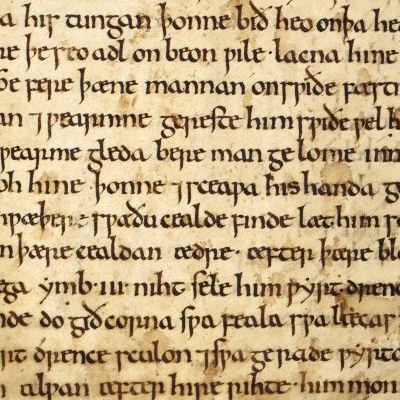 a his tungan þonne bið heo onþa he
re þe seo adl on beon pile · lacna hine
se fere þæne mannan onsƿiðe fæst
an ⁊ ƿearmne gereste him sƿiðe ƿel h
ƿearme gleda bere man ge lome inn
oh hine þonne ⁊ sceaƿa his handa g
raþere sƿaðu cealde finde læt him
n þære cealdan ædre · æfter þære bl
ega ymb · iii niht sele him ƿyrt drenc
nde do gið corna sƿa feala sƿa læcas
rit drence sculon ⁊ sƿa gerade ƿyrt
alƿan æfter hire rihte · him mon